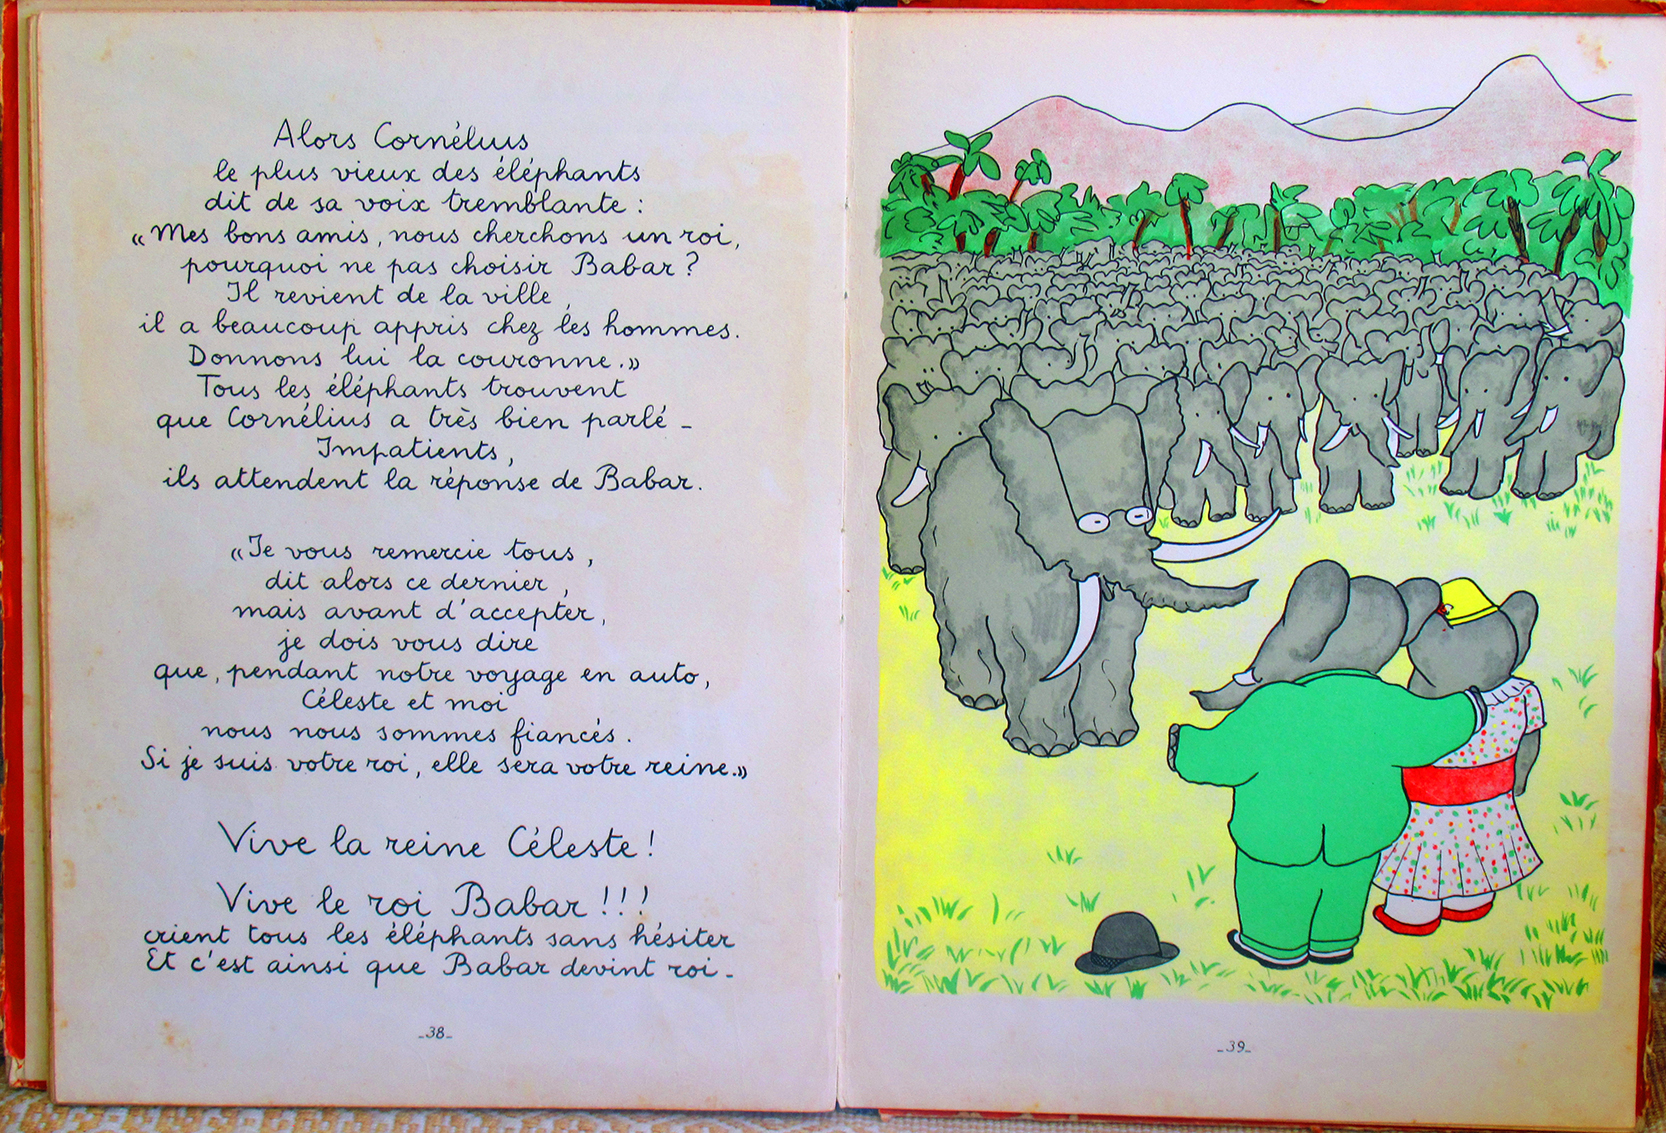 Alors Cornélius
le plus vieux des éléphants
dit de sa voix tremblante :
« Mes bons amis, nous cherchons un roi,
pourquoi ne pas choisir Babar ?
Il revient de la ville,
il a beaucoup appris chez les hommes.
Donnons lui la couronne. »
Tous les éléphants trouvent
que Cornélius a très bien parlé -
Impatients,
ils attendent la réponse de Babar.
« Je vous remercie tous,
dit alors ce dernier,
mais avant d'accepter,
je dois vous dire
que, pendant notre voyage en auto,
Céleste et moi
nous nous sommes fiancés.
Si je suis votre roi, elle sera votre reine. »
Vive la reine Céleste !
Vive le roi Babar !!!
crient tous les éléphants sans hésiter
Et c'est ainsi que Babar devint roi -
_38_
_39_